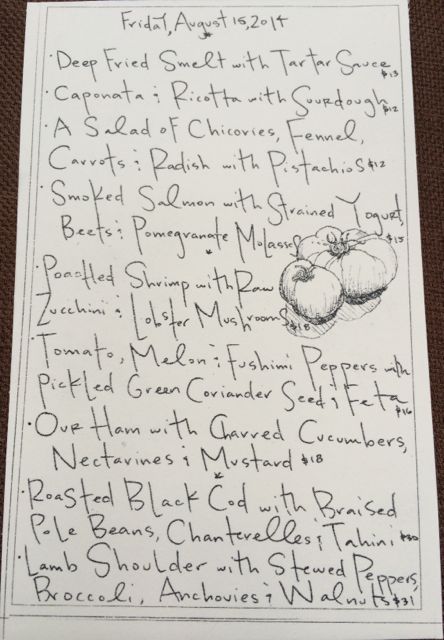 Friday, August 15, 2014
· Deep Fried Smelt with Tartar Sauce $13
· Caponata & Ricotta with Sourdough $12
· A Salad of Chicories, Fennel,
Carrots & Radish with Pistachios $12
· Smoked Salmon with Strained Yogurt,
Beets & Pomegranate Molasses $15
· Poached Shrimp with Raw
Zucchini & Lobster Mushrooms $18
· Tomato, Melon & Fushimi Peppers with
Pickled Green Coriander Seed & Feta $16
· Our Ham with Charred Cucumbers,
Nectarines & Mustard $18
· Roasted Black Cod with Braised
Pole Beans, Chanterelles & Tahini $30
· Lamb Shoulder with Stewed Peppers,
Broccoli, Anchovies & Walnuts $31